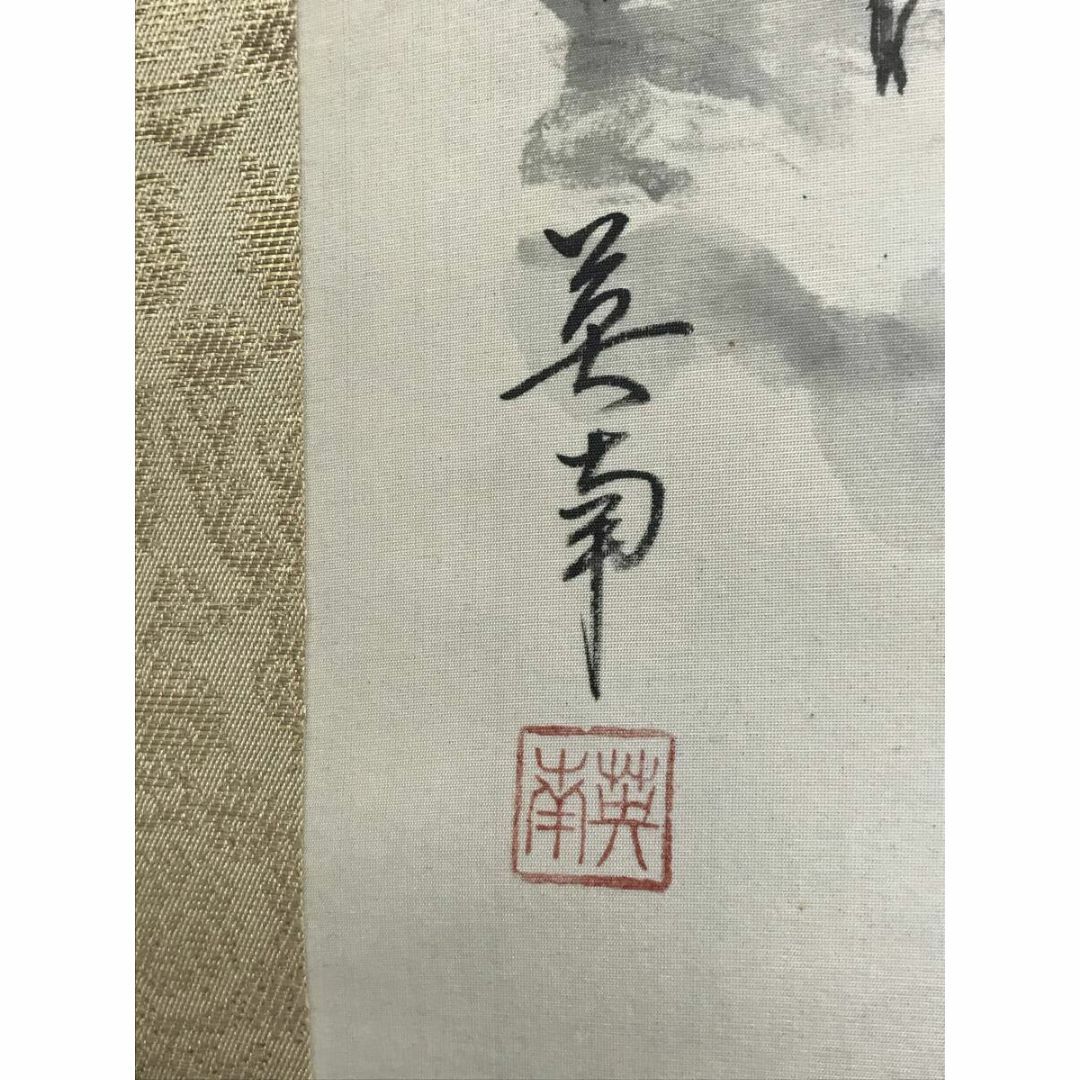 英南
英南